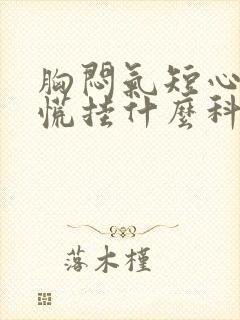 胸悶氣短心
慌挂什麼科
落木槿